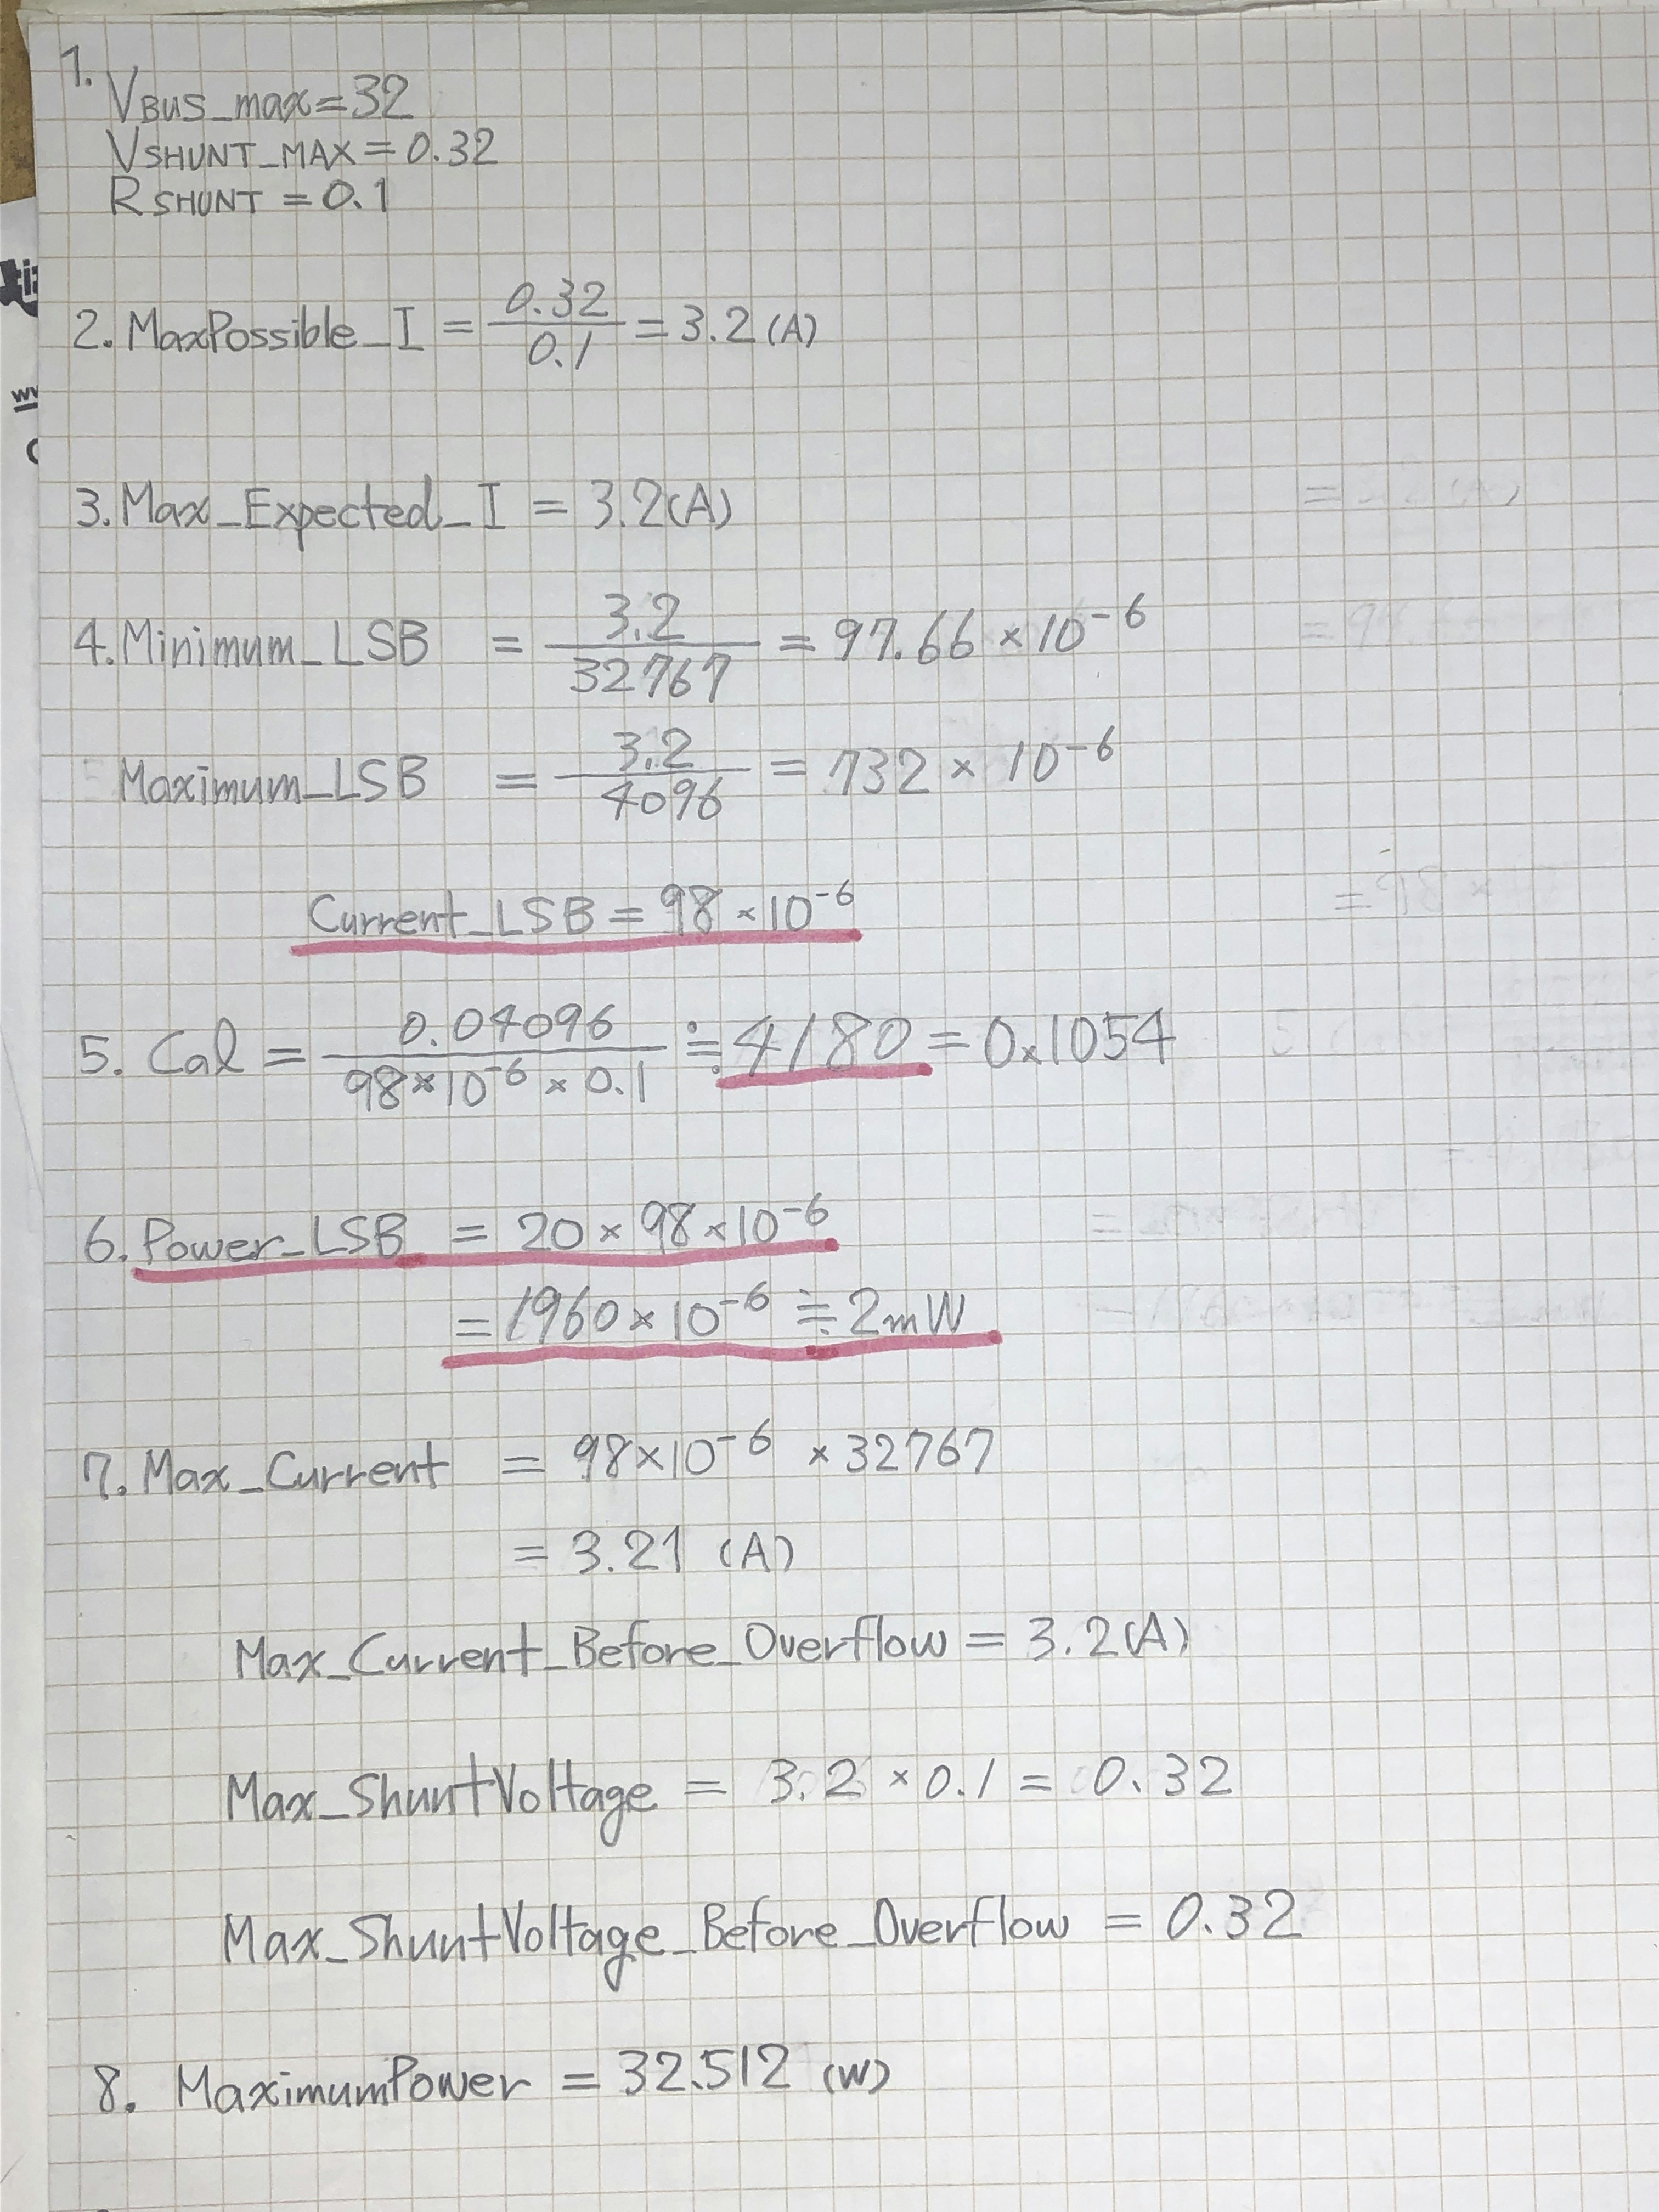 1.
VBUS_max=32
VSHUNT_MAX=0.32
RSHUNT=0.1
2. MaxPossible_I = 0.32/0.1 = 3.2(A)
3. Max_Expected_I = 3.2(A)
4. Minimum_LSB = 3.2/32767 = 97.66×10⁻⁶
Maximum_LSB = 3.2/4096 = 732×10⁻⁶
Current_LSB = 98×10⁻⁶
5. Cal = 0.04096/98×10⁻⁶×0.1 ≒ 4180 = 0x1054
6. Power_LSB = 20×98×10⁻⁶
= 1960×10⁻⁶ ≒ 2mW
7. Max_Current = 98×10⁻⁶×32767
= 3.21 (A)
Max_Current_Before_Overflow = 3.2(A)
Max_ShuntVoltage = 3.2×0.1 = 0.32
Max_ShuntVoltage_Before_Overflow = 0.32
8. MaximumPower = 32.512 (W)